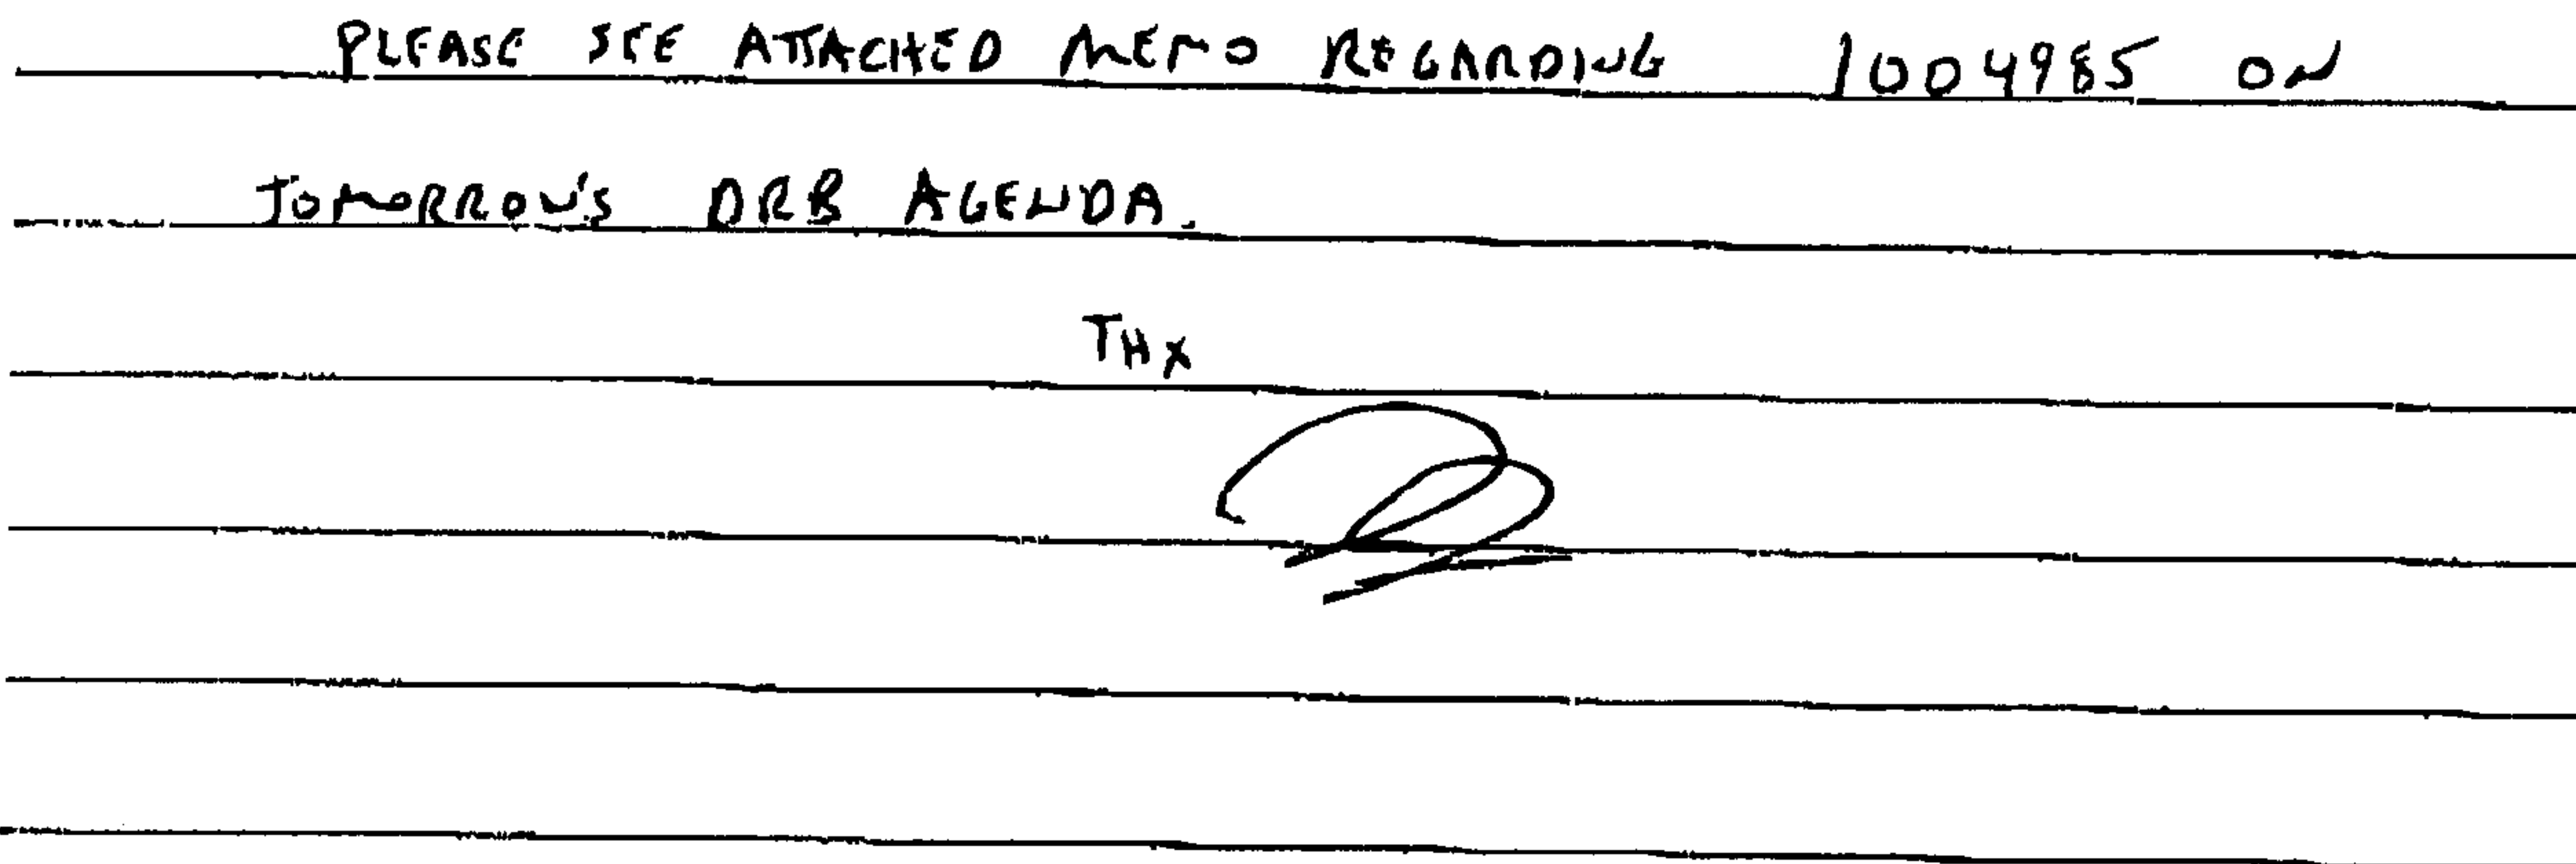 PLEASE SEE ATTACHED MEMO REGARDING 1004985 ON
TOMORROW'S DRB AGENDA.
THX